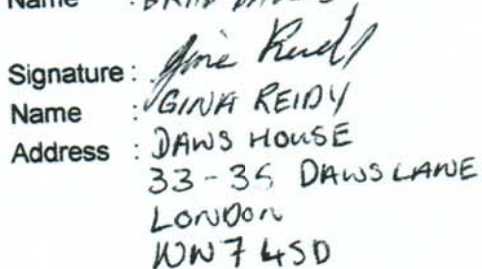 Name :
Signature :
Name : GINA REIDY
Address : DAWS HOUSE
33-35 DAWS LANE
LONDON
NW7 4SD